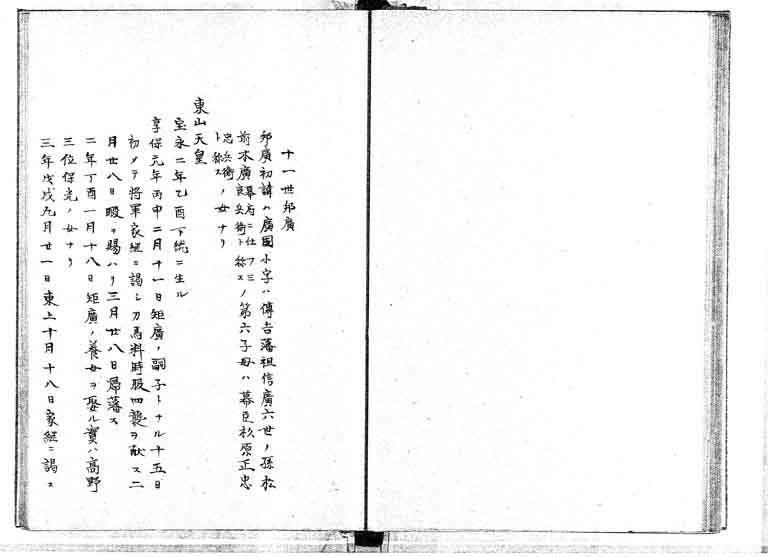 十一世邦廣
邦廣初諱ハ廣國小字ハ傳吉藩祖信廣六世ノ孫松
前本廣幕府ニ仕フ三良兵衛ト称スノ第六子母ハ幕臣杉原正忠
忠兵衛ト称スノ女ナリ
東山天皇
宝永二年乙酉下総ニ生ル
享保元年丙申二月十一日矩廣ノ嗣子トナル十五日
初メテ将軍家継ニ謁シ刀馬料時服四襲ヲ献ス二
月廿八日暇ヲ賜ハリ三月廿八日帰藩ス
二年丁酉一月十八日矩廣ノ養女ヲ娶ル實ハ高野
三位保光ノ女ナリ
三年戊戌九月廿一日東上十月十八日家継ニ謁ス